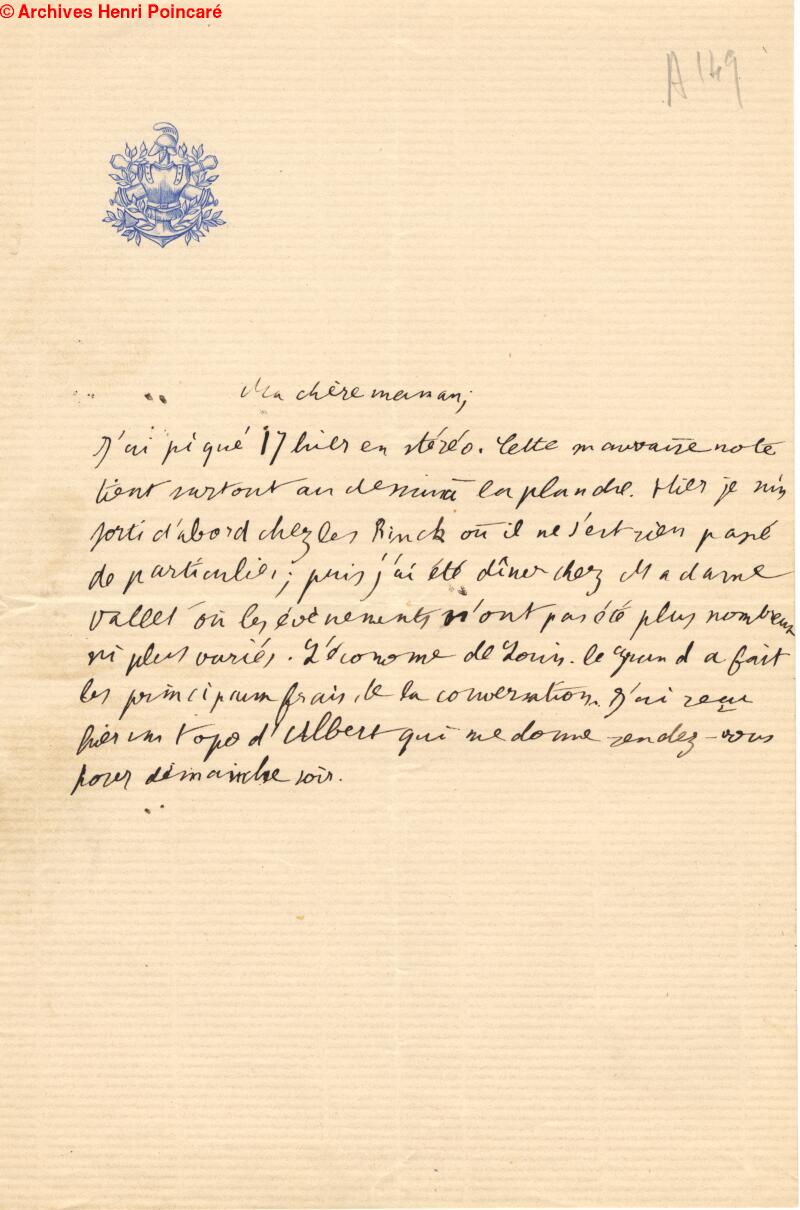 © Archives Henri Poincaré
A 149
Ma chère maman,
J'ai piqué 17 hier en stéréo. Cette mauvaise note
tient surtout au dessin à la planche. Hier je suis
sorti d'abord chez les Rinck où il ne s'est rien passé
de particulier; puis j'ai été dîner chez Madame
Vallet où les évènements n'ont pas été plus nombreux
ni plus variés. L'économe de Louis-le-Grand a fait
les principaux frais de la conversation. J'ai reçu
hier un topo d'Albert qui me donne rendez-vous
pour dimanche soir.